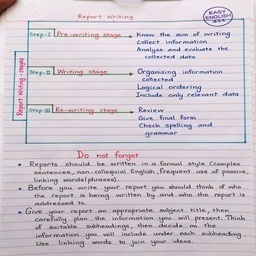 Report Writing
EASY ENGLISH
Report Writing - stages
Step-I Pre-writing stage → Know the aim of writing
Collect information
Analyse and evaluate the
collected data
Step-II Writing stage → Organising information
collected
Logical ordering
Include only relevant data
Step-III Re-writing stage → Review
Give final form
Check spelling and
grammar
Do not forget
• Reports should be written in a formal style (complex
sentences, non-colloquial English, frequent use of passive,
linking words/phrases).
• Before you write your report you should think of who
the report is being written by and who the report is
addressed to.
• Give your report an appropriate subject title, then
carefully plan the information you will present. Think
of suitable subheadings, then decide on the
information you will include under each subheading.
Use linking words to join your ideas.